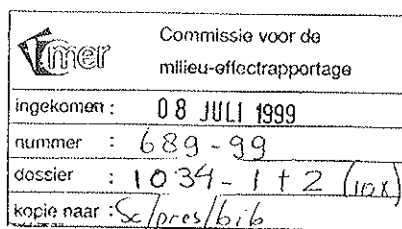 mer
Commissie voor de
milieu-effectrapportage
ingekomen : 08 JULI 1999
nummer : 689-99
dossier : 1034-1+2 (10x)
kopie naar : Sc/pres/bib